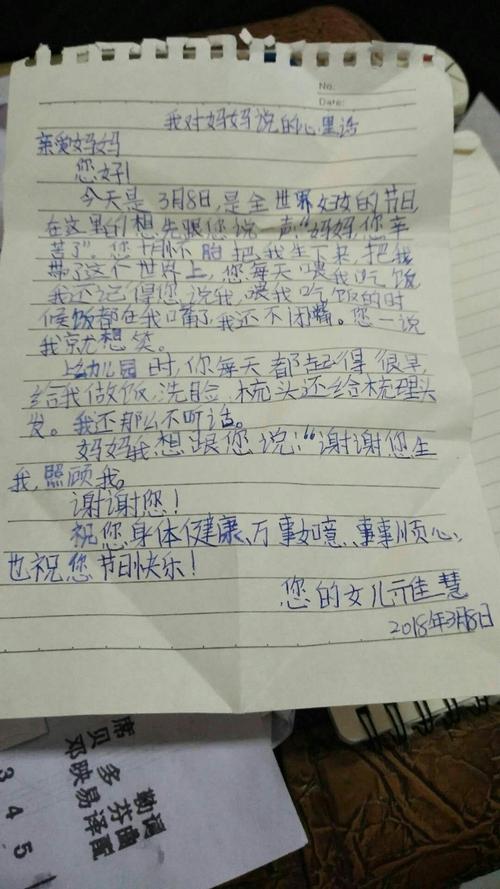 No.
Date:
我对妈妈说的心里话
亲爱妈妈
您好!
今天是3月8日,是全世界妇女的节日,
在这里的想先跟您说一声"妈妈,你辛
苦了"。您把我生下来,把我
带了这个世界上,您每天喂我吃饭,
我还记得您说我,喂我吃饭的时
候饭都在我嘴了,我还不闭嘴。您一说
我就想笑。
上幼儿园时,你每天都起得很早,
给我做饭,洗脸、梳头还给梳理头
发。我还那么不听话。
妈妈我想跟您说:"谢谢您生
我,照顾我。
谢谢您!
祝您身体健康、万事如意、事事顺心,
也祝您节日快乐!
您的女儿佳慧
2018年3月8日
席勒词
贝多芬曲
邓映易译配
3
4
5